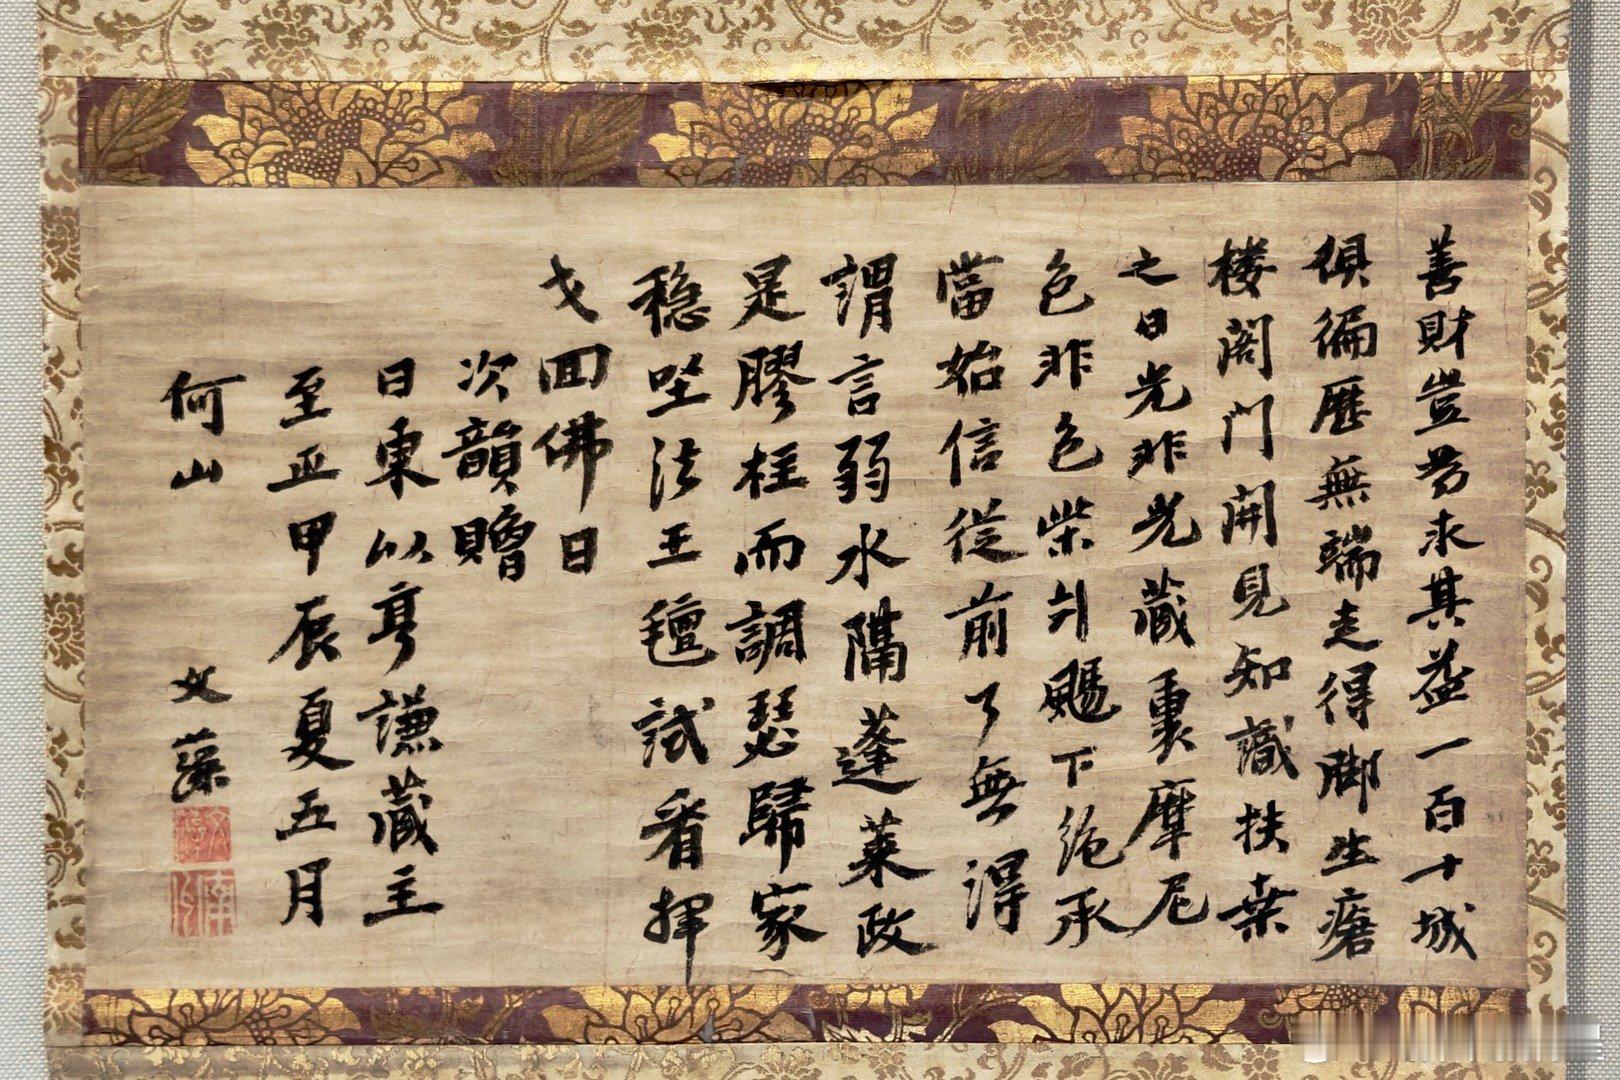 善財豈勞求其益一百十城
俱徧歷無端走得脚生瘡
楼閣門開見知識扶桒
之日光非光藏裏摩尼
色非色柴刋颺下絶承
當始信從前了無得
謂言弱水隔蓬萊政
是膠柱而調瑟歸家
穏坐法王氊試看揮
戈回佛日
次韻贈
日東以亨謙藏主
至正甲辰夏五月
何山 文藻